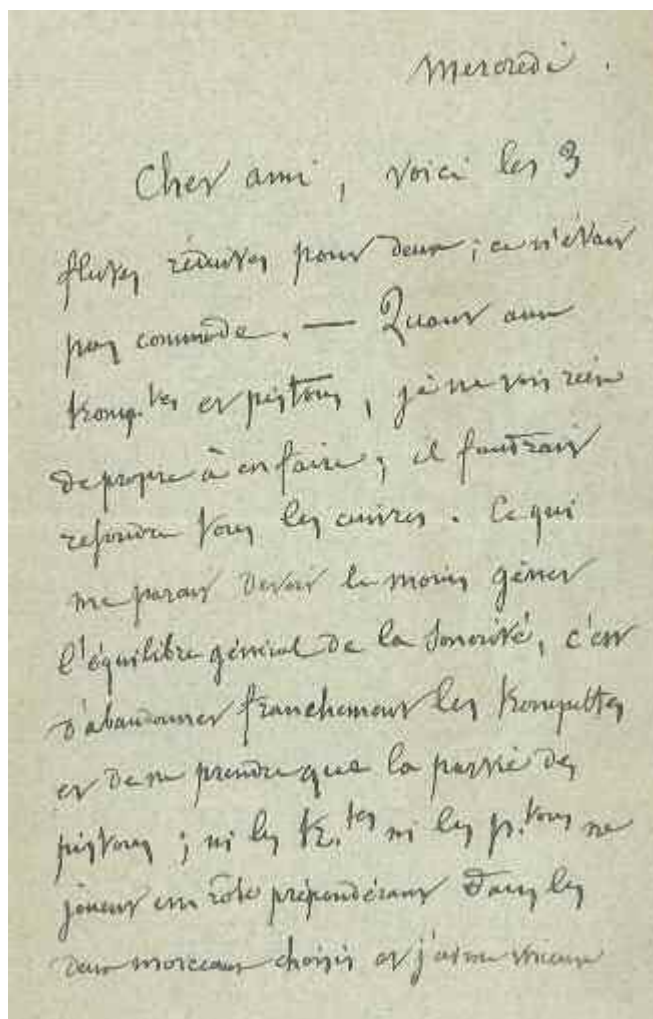 Mercredi.
Cher ami, voici les 3
flûtes réduites pour deux ; ce n'était
pas commode. — Quant aux
tromp.tes et pistons, je ne vois rien
de propre à en faire ; il faudrait
refondre tous les cuivres. Ce qui
me parait devoir le moins gêner
l'équilibre général de la sonorité, c'est
d'abandonner franchement les trompettes
et de ne prendre que la partie des
pistons ; ni les tr.tes ni les p.tons ne
jouent un rôle prépondérant dans les
deux morceaux choisis et j'aime mieux